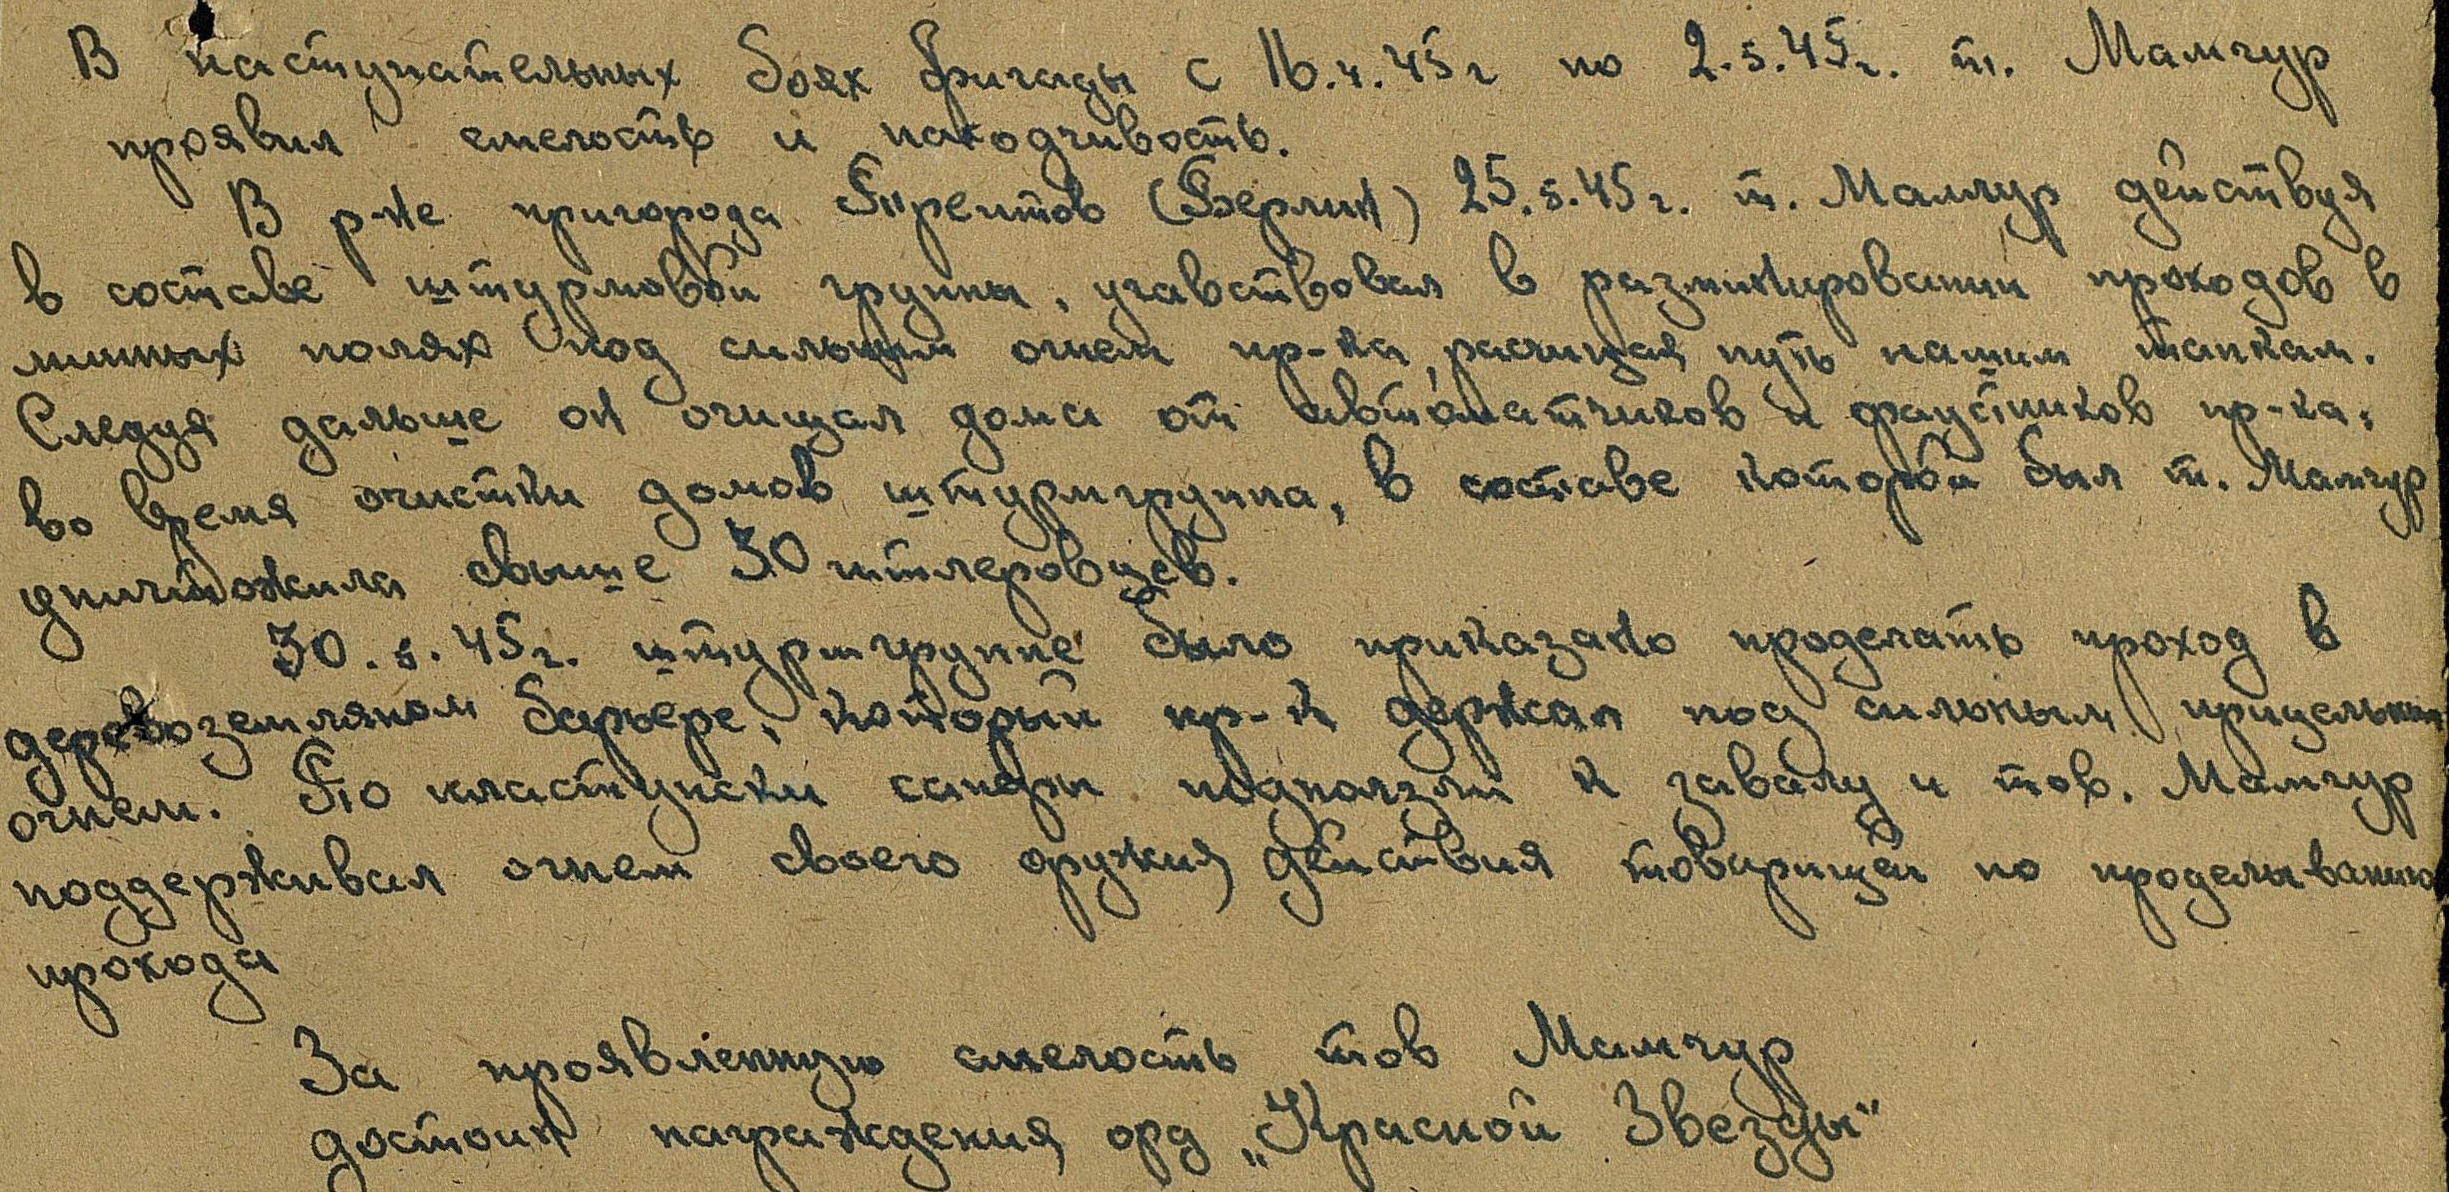 В наступательных боях бригады с 16.4.45г по 2.5.45г. т. Мамчур
проявил смелость и находчивость.
В р-не пригорода Трептов (Берлин) 25.5.45г. т. Мамчур действуя
в составе штурмовой группы, учавствовал в разминировании проходов в
минных полях под сильным огнем пр-ка, расчищая путь нашим танкам.
Следуя дальше он очищал дома от автоматчиков и фаустников пр-ка;
во время очистки домов штурмгруппа, в составе которой был т. Мамчур
уничтожила свыше 30 гитлеровцев.
30.5.45г. штурмгруппе было приказано проделать проход в
деревоземляном барьере, который пр-к держал под сильным прицельным
огнем. По пластунски саперы подползли к завалу и тов. Мамчур
поддерживал огнем своего оружия действия товарищей по проделыванию
прохода
За проявленную смелость тов Мамчур
достоин награждения орд „Красной Звезды"